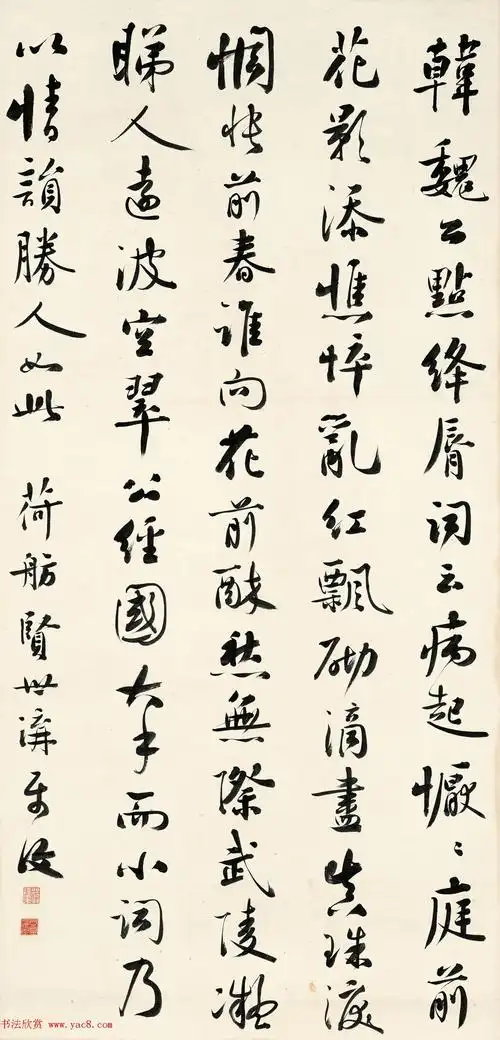 韓魏公點絳脣詞云病起懨〻庭前
花影添憔悴亂紅飄砌滴盡真珠淚
惆悵前春誰向花前醉愁無際武陵凝
睇人遠波空翠公經國大手而小詞乃
以情韻勝人如此 荷舫賢世講
书法欣赏 www.yac8.com